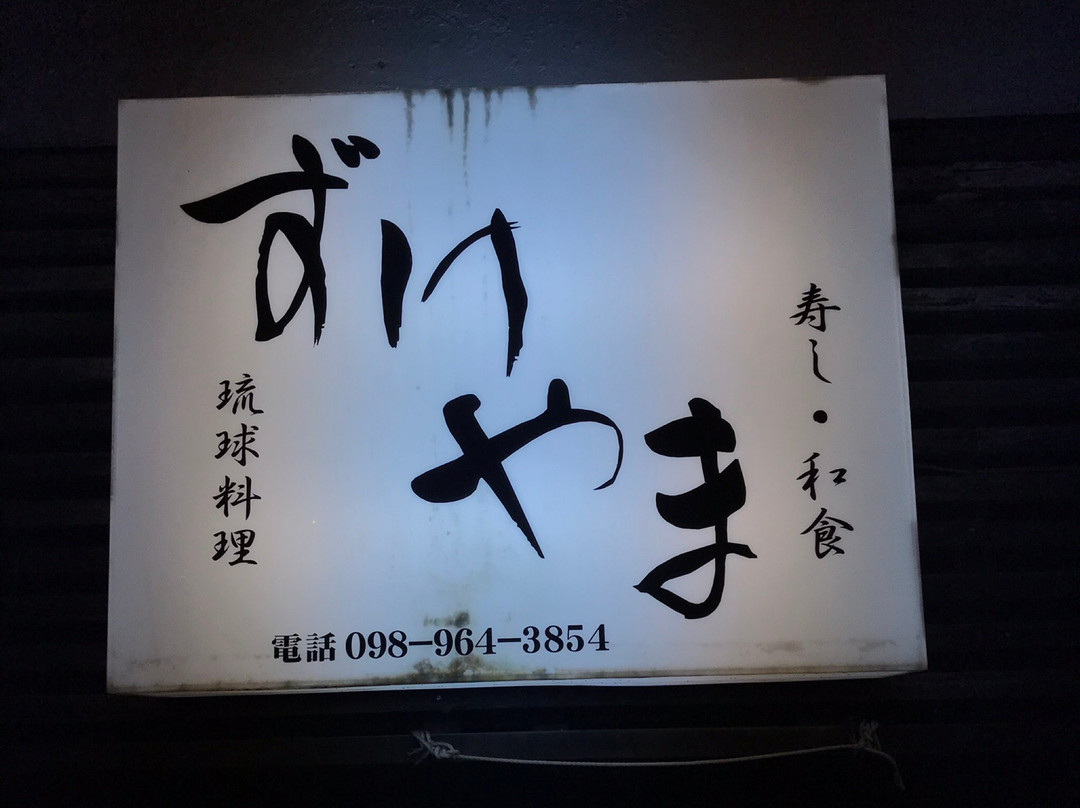 ずけやま
寿し・和食
琉球料理
電話 098-964-3854